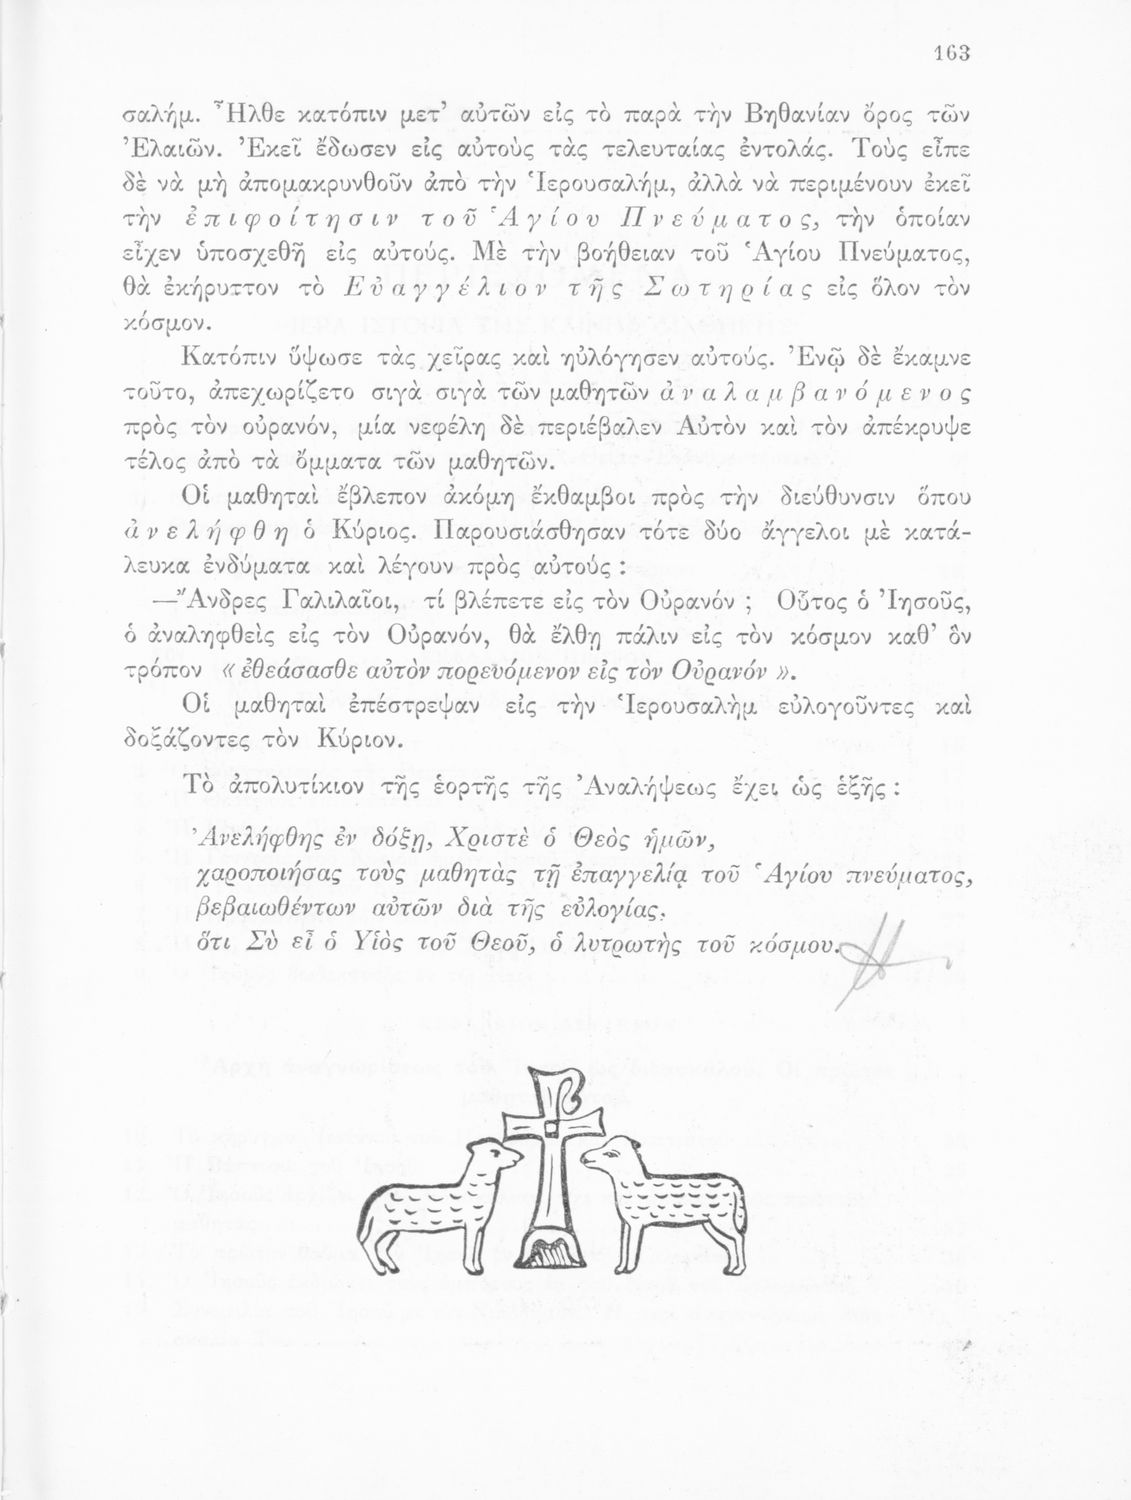 163
σαλήμ. Ἦλθε κατόπιν μετ’ αὐτῶν εἰς τὸ παρὰ τὴν Βηθανίαν ὄρος τῶν
Ἐλαιῶν. Ἐκεῖ ἔδωσεν εἰς αὐτοὺς τὰς τελευταίας ἐντολάς. Τοὺς εἶπε
δὲ νὰ μὴ ἀπομακρυνθοῦν ἀπὸ τὴν Ἱερουσαλήμ, ἀλλὰ νὰ περιμένουν ἐκεῖ
τὴν ἐπιφοίτησιν τοῦ Ἁγίου Πνεύματος, τὴν ὁποίαν
εἶχεν ὑποσχεθῆ εἰς αὐτούς. Μὲ τὴν βοήθειαν τοῦ Ἁγίου Πνεύματος,
θὰ ἐκήρυττον τὸ Εὐαγγέλιον τῆς Σωτηρίας εἰς ὅλον τὸν
κόσμον.
Κατόπιν ὕψωσε τὰς χεῖρας καὶ ηὐλόγησεν αὐτούς. Ἐνῷ δὲ ἔκαμνε
τοῦτο, ἀπεχωρίζετο σιγὰ σιγὰ τῶν μαθητῶν ἀναλαμβανόμενος
πρὸς τὸν οὐρανόν, μία νεφέλη δὲ περιέβαλεν Αὐτὸν καὶ τὸν ἀπέκρυψε
τέλος ἀπὸ τὰ ὄμματα τῶν μαθητῶν.
Οἱ μαθηταὶ ἔβλεπον ἀκόμη ἔκθαμβοι πρὸς τὴν διεύθυνσιν ὅπου
ἀνελήφθη ὁ Κύριος. Παρουσιάσθησαν τότε δύο ἄγγελοι μὲ κατά-
λευκα ἐνδύματα καὶ λέγουν πρὸς αὐτούς :
—Ἄνδρες Γαλιλαῖοι, τί βλέπετε εἰς τὸν Οὐρανόν ; Οὗτος ὁ Ἰησοῦς,
ὁ ἀναληφθεὶς εἰς τὸν Οὐρανόν, θὰ ἔλθῃ πάλιν εἰς τὸν κόσμον καθ’ ὃν
τρόπον « ἐθεάσασθε αὐτὸν πορευόμενον εἰς τὸν Οὐρανόν ».
Οἱ μαθηταὶ ἐπέστρεψαν εἰς τὴν Ἱερουσαλὴμ εὐλογοῦντες καὶ
δοξάζοντες τὸν Κύριον.
Τὸ ἀπολυτίκιον τῆς ἑορτῆς τῆς Ἀναλήψεως ἔχει ὡς ἑξῆς :
Ἀνελήφθης ἐν δόξῃ, Χριστὲ ὁ Θεὸς ἡμῶν,
χαροποιήσας τοὺς μαθητὰς τῇ ἐπαγγελίᾳ τοῦ Ἁγίου πνεύματος,
βεβαιωθέντων αὐτῶν διὰ τῆς εὐλογίας,
ὅτι Σὺ εἶ ὁ Υἱὸς τοῦ Θεοῦ, ὁ λυτρωτὴς τοῦ κόσμου.